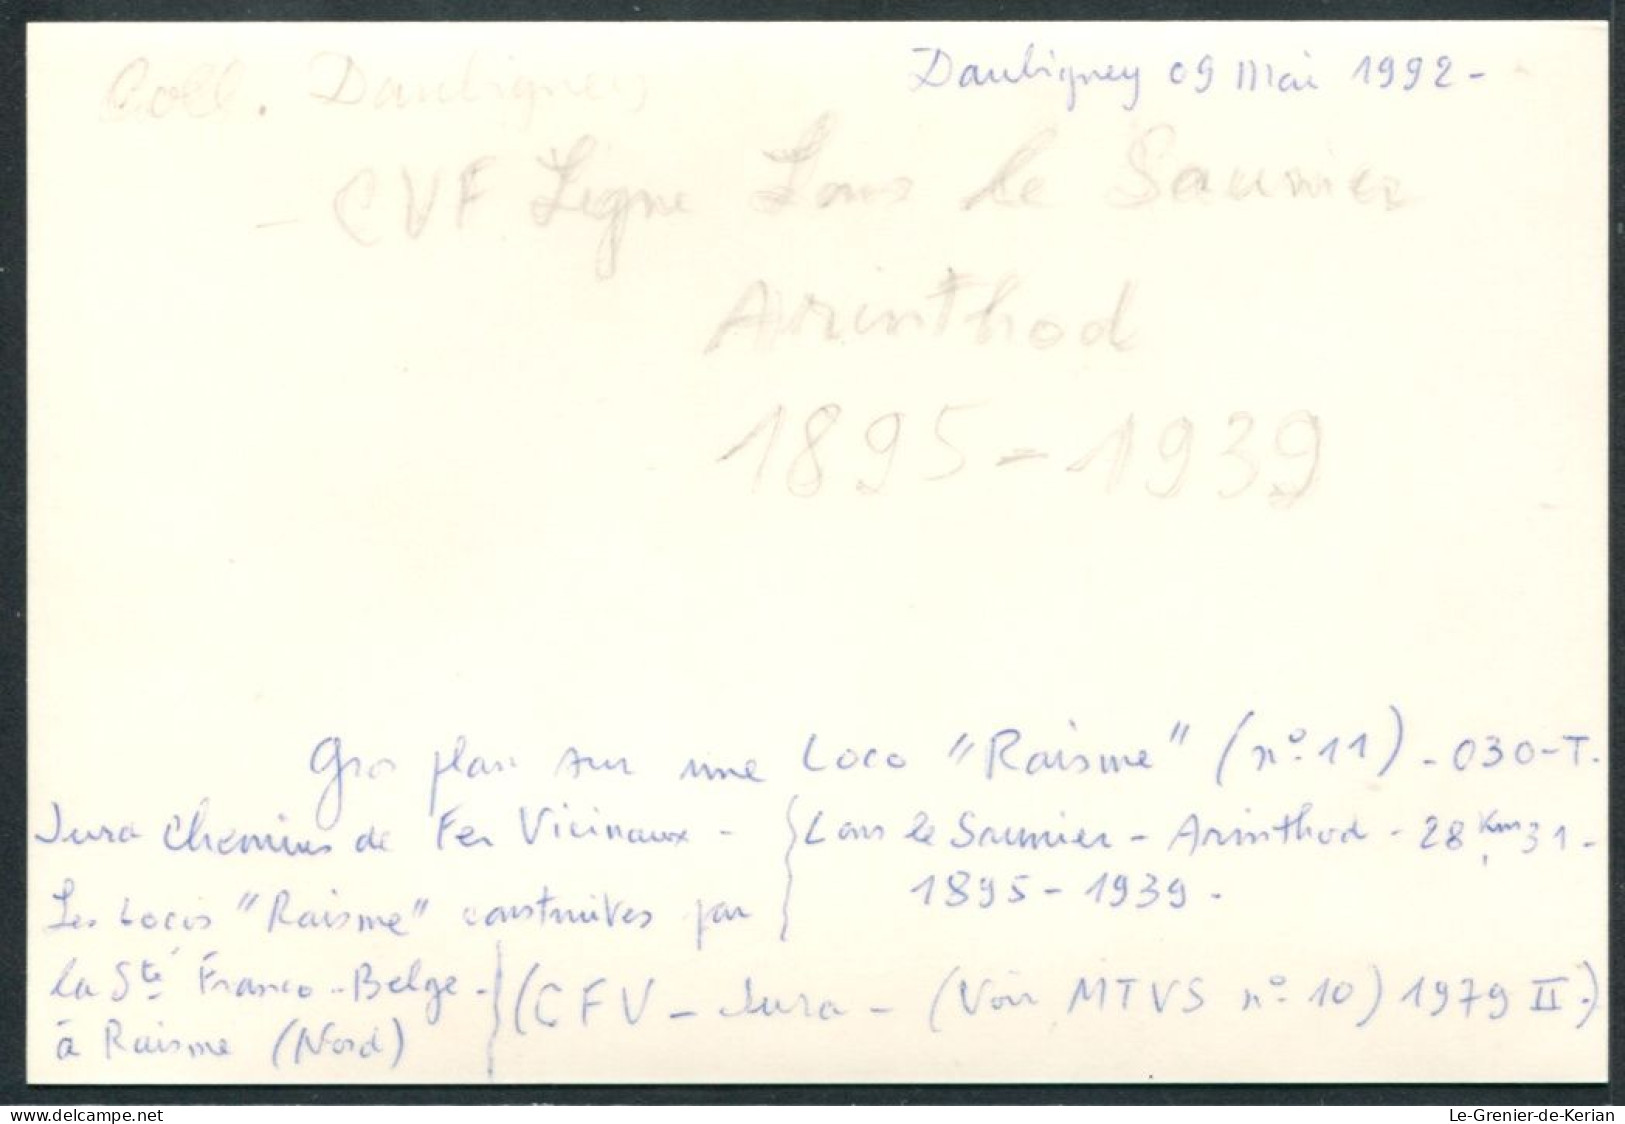 Daubigney 09 Mai 1992 -
Coll. Daubigney
- CVF Ligne Lons le Saunier
Arinthod
1895 - 1939
Gros plan sur une Loco "Raisme" (n° 11) - 030-T.
Jura Chemins de Fer Vicinaux -
Lons le Saunier - Arinthod - 28 Km, 31 -
1895 - 1939 -
Les Locos "Raisme" construites par
la Sté Franco-Belge -
à Raisme (Nord)
(CFV - Jura - (Voir MTVS n° 10) 1979 II.)
delcampe.net
Le-Grenier-de-Kerian